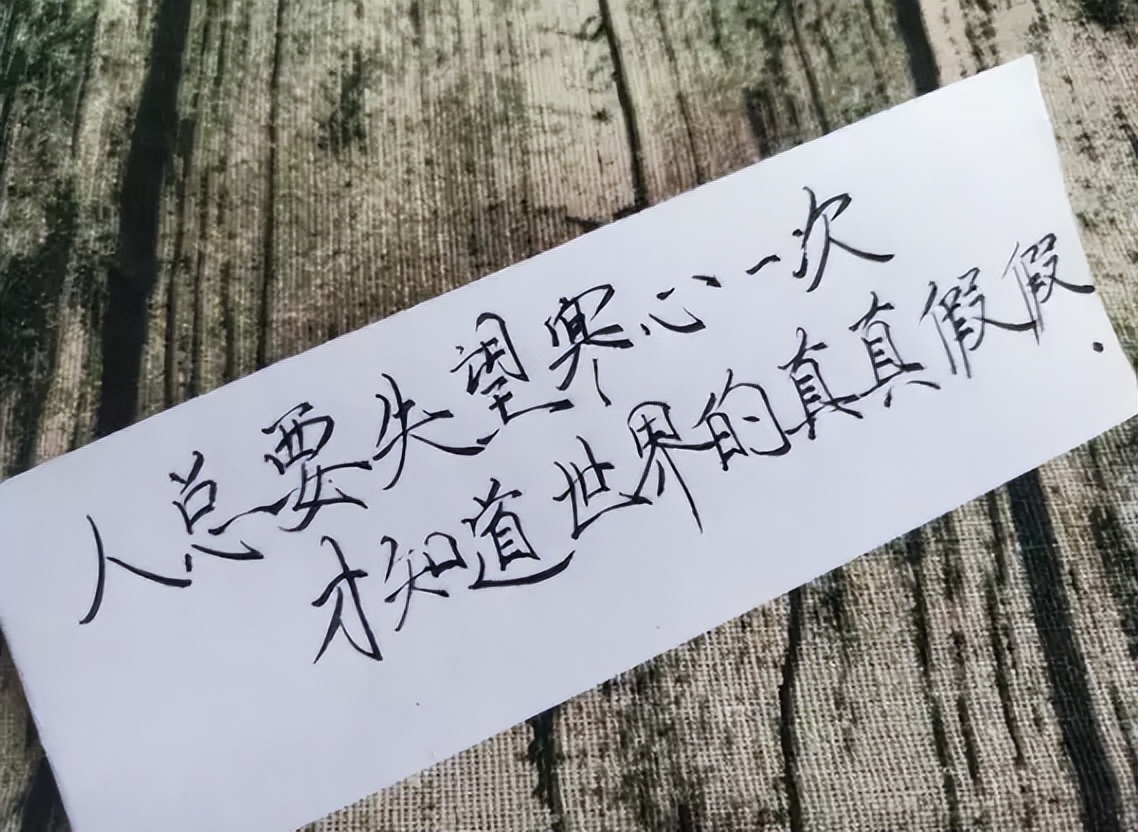 人总要失望寒心一次
才知道世界的真真假假.